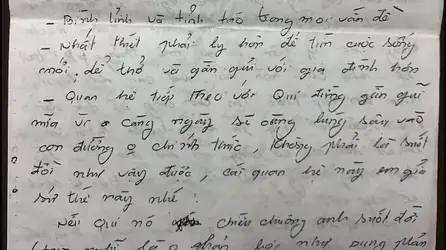 - Bình tĩnh và tỉnh táo trong mọi vấn đề
- Nhất thiết phải ly hôn để tìm cuộc sống
mới, dễ thở và gần gũi với gia đình hơn
- Quan hệ tiếp theo với Quí đừng gần gũi
nữa vì càng ngày sẽ càng lung sâu vào
con đường o chính thức, không phải là suốt
đời như vậy được, cái quan hệ này em giả
sử thế này nhé!
Nếu Quí nó chiều chuộng anh suốt đời